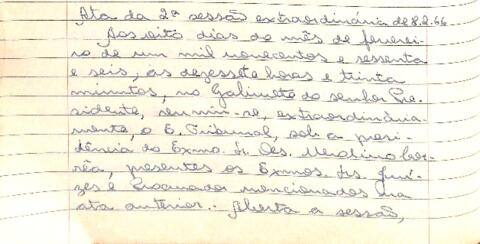 Ata da 2ª sessão extraordinária de 8.2.66
Aos oito dias do mês de feverei-
ro de um mil novecentos e sessenta
e seis, às dezessete horas e trinta
minutos, no Gabinete do senhor Pre-
sidente, reuniu-se, extraordinária-
mente, o E. Tribunal, sob a presi-
dência do Exmo. Sr. Des. Merolino Cor-
rêa, presentes os Exmos. Srs. Juí-
zes e Procurador mencionados na
ata anterior. Aberta a sessão,